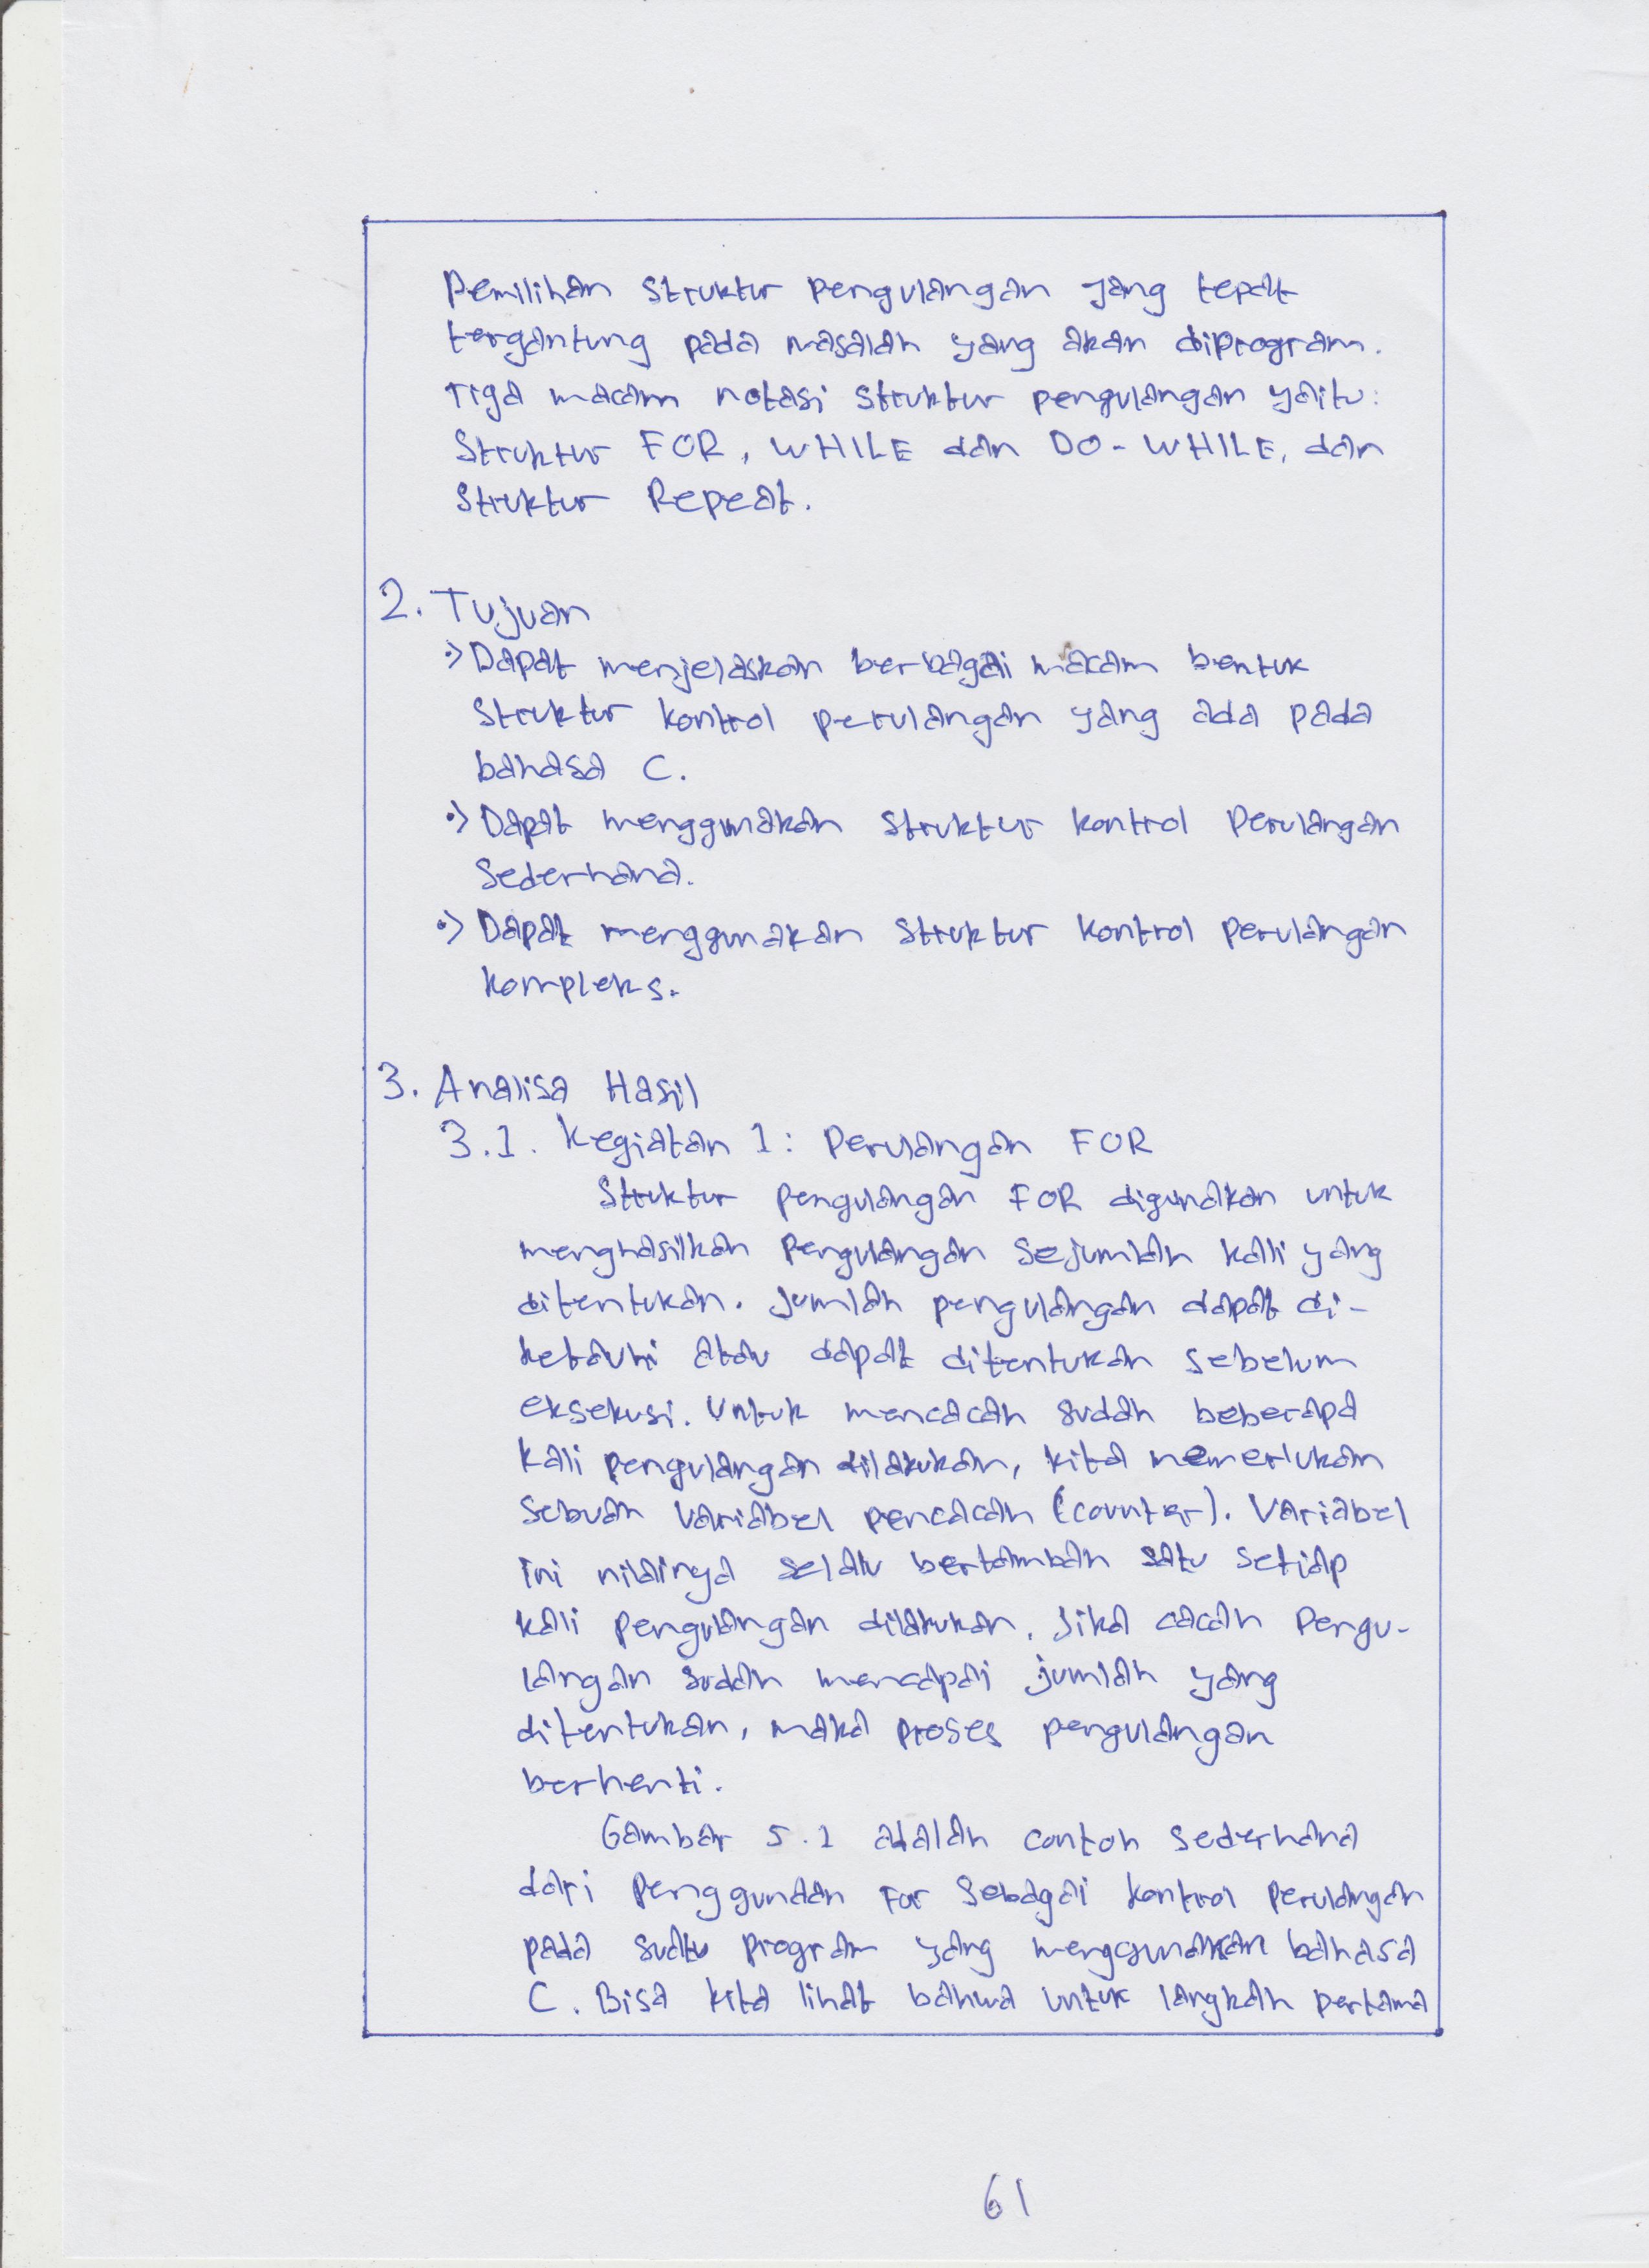 Pemilihan struktur pengulangan yang tepat
tergantung pada masalah yang akan diprogram.
Tiga macam notasi struktur pengulangan yaitu:
Struktur FOR, WHILE dan DO-WHILE, dan
Struktur Repeat.
2. Tujuan
•> Dapat menjelaskan berbagai macam bentuk
struktur kontrol perulangan yang ada pada
bahasa C.
•> Dapat menggunakan struktur kontrol perulangan
sederhana.
•> Dapat menggunakan struktur kontrol perulangan
kompleks.
3. Analisa Hasil
3.1. Kegiatan 1: Perulangan FOR
Struktur pengulangan FOR digunakan untuk
menghasilkan pengulangan sejumlah kali yang
ditentukan. Jumlah pengulangan dapat di-
ketauhi atau dapat ditentukan sebelum
eksekusi. Untuk mencacah sudah beberapa
kali pengulangan dilakukan, kita memerlukan
sebuah variabel pencacah (counter). Variabel
ini nilainya selalu bertambah satu setiap
kali pengulangan dilakukan. Jika cacah pengu-
langan sudah mencapai jumlah yang
ditentukan, maka proses pengulangan
berhenti.
Gambar 5.1 adalah contoh sederhana
dari penggunaan For sebagai kontrol perulangan
pada suatu program yang menggunakan bahasa
C. Bisa kita lihat bahwa untuk langkah pertama
61